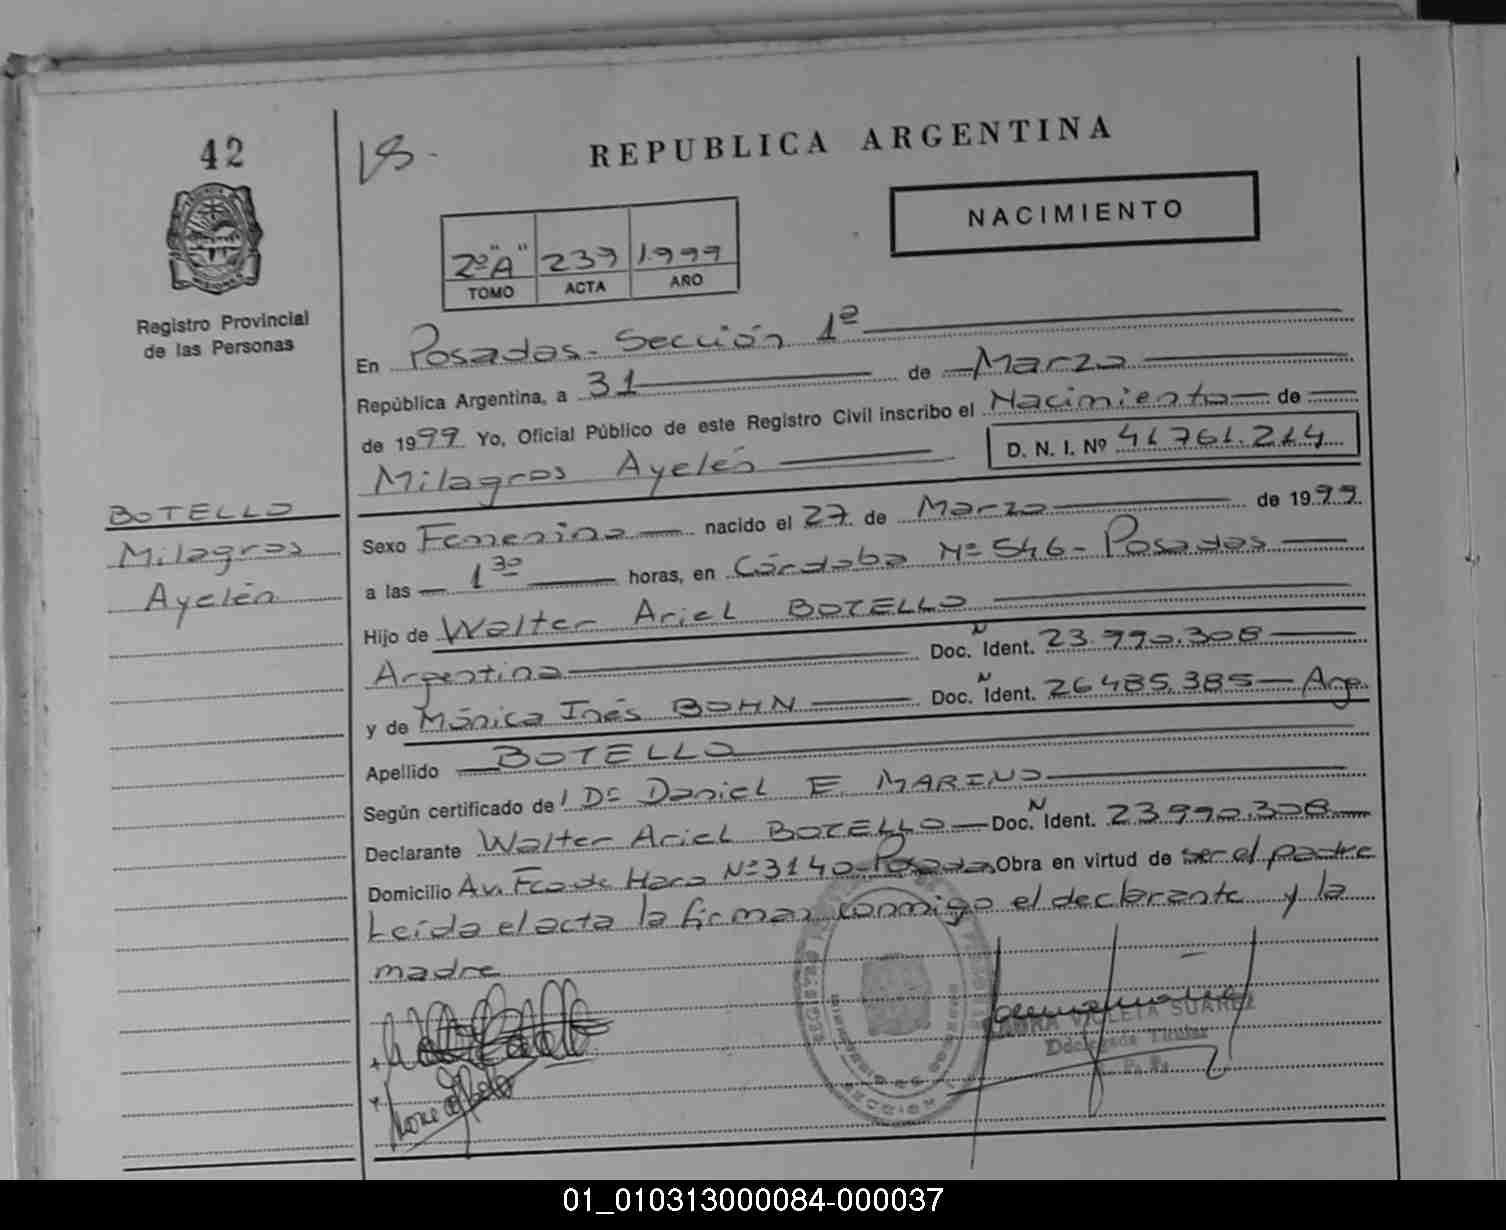 42
REPUBLICA ARGENTINA
NACIMIENTO
2º "A" 239 1.999
TOMO ACTA AÑO
Registro Provincial
de las Personas
En Posadas - Sección 1ª
República Argentina, a 31 de Marzo
de 1999 Yo, Oficial Público de este Registro Civil inscribo el Nacimiento de
Milagros Ayelén D. N. I. Nº 41.761.214
BOTELLO
Milagros
Ayelén
Sexo Femenino nacido el 27 de Marzo de 1999
a las 1 30 horas, en Córdoba Nº 546 - Posadas
Hijo de Walter Ariel BOTELLO
Argentino Doc. N Ident. 23.990.308
y de Mónica Inés BOHN Doc. N Ident. 26.485.385 - Arg.
Apellido BOTELLO
Según certificado de Daniel E. MARENO
Declarante Walter Ariel BOTELLO Doc. N Ident. 23.990.308
Domicilio Av. Fco de Haro Nº 3140 - Posadas Obra en virtud de ser el padre
Leída el acta la firman conmigo el declarante y la
madre
VIOLETA SUAREZ
Titular
01_010313000084-000037